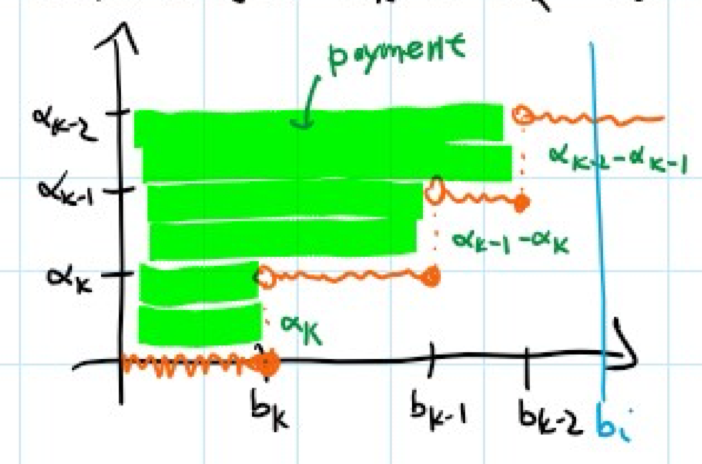 payment
αK-2
αK-2-αK-1
αK-1
αK-1-αK
αK
αK
bK
bK-1
bK-2
bi